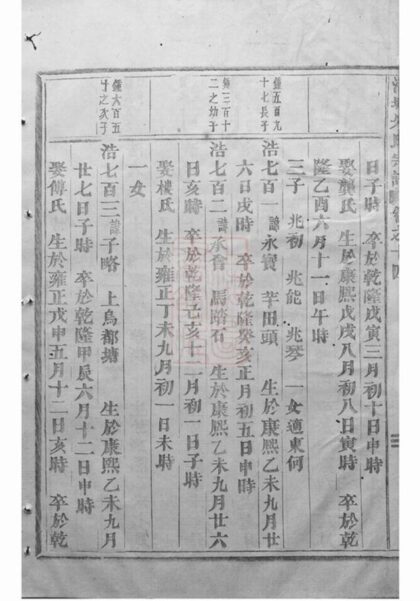 日子時 卒於乾隆戊寅三月初十日申時
娶龔氏 生於康熙戊戌八月初八日寅時 卒於乾
隆乙酉六月十一日午時
三子 兆初 兆能 兆琴 一女適東何
鍾五百九
十七長子
浩七百一 諱永寶 芋田頭 生於康熙乙未九月廿
六日戌時 卒於乾隆癸亥正月初五日申時
鍾三百十
二之幼子
浩七百二 諱承 馬踏石 生於康熙乙未九月廿六
日亥時 卒於乾隆乙亥十一月初一日子時
娶樓氏 生於雍正丁未九月初一日未時
一女
鍾六百五
十之次子
浩七百三 諱子略 上烏都塘 生於康熙乙未九月
廿七日子時 卒於乾隆甲辰六月十二日申時
娶傅氏 生於雍正戊申五月十二日亥時 卒於乾